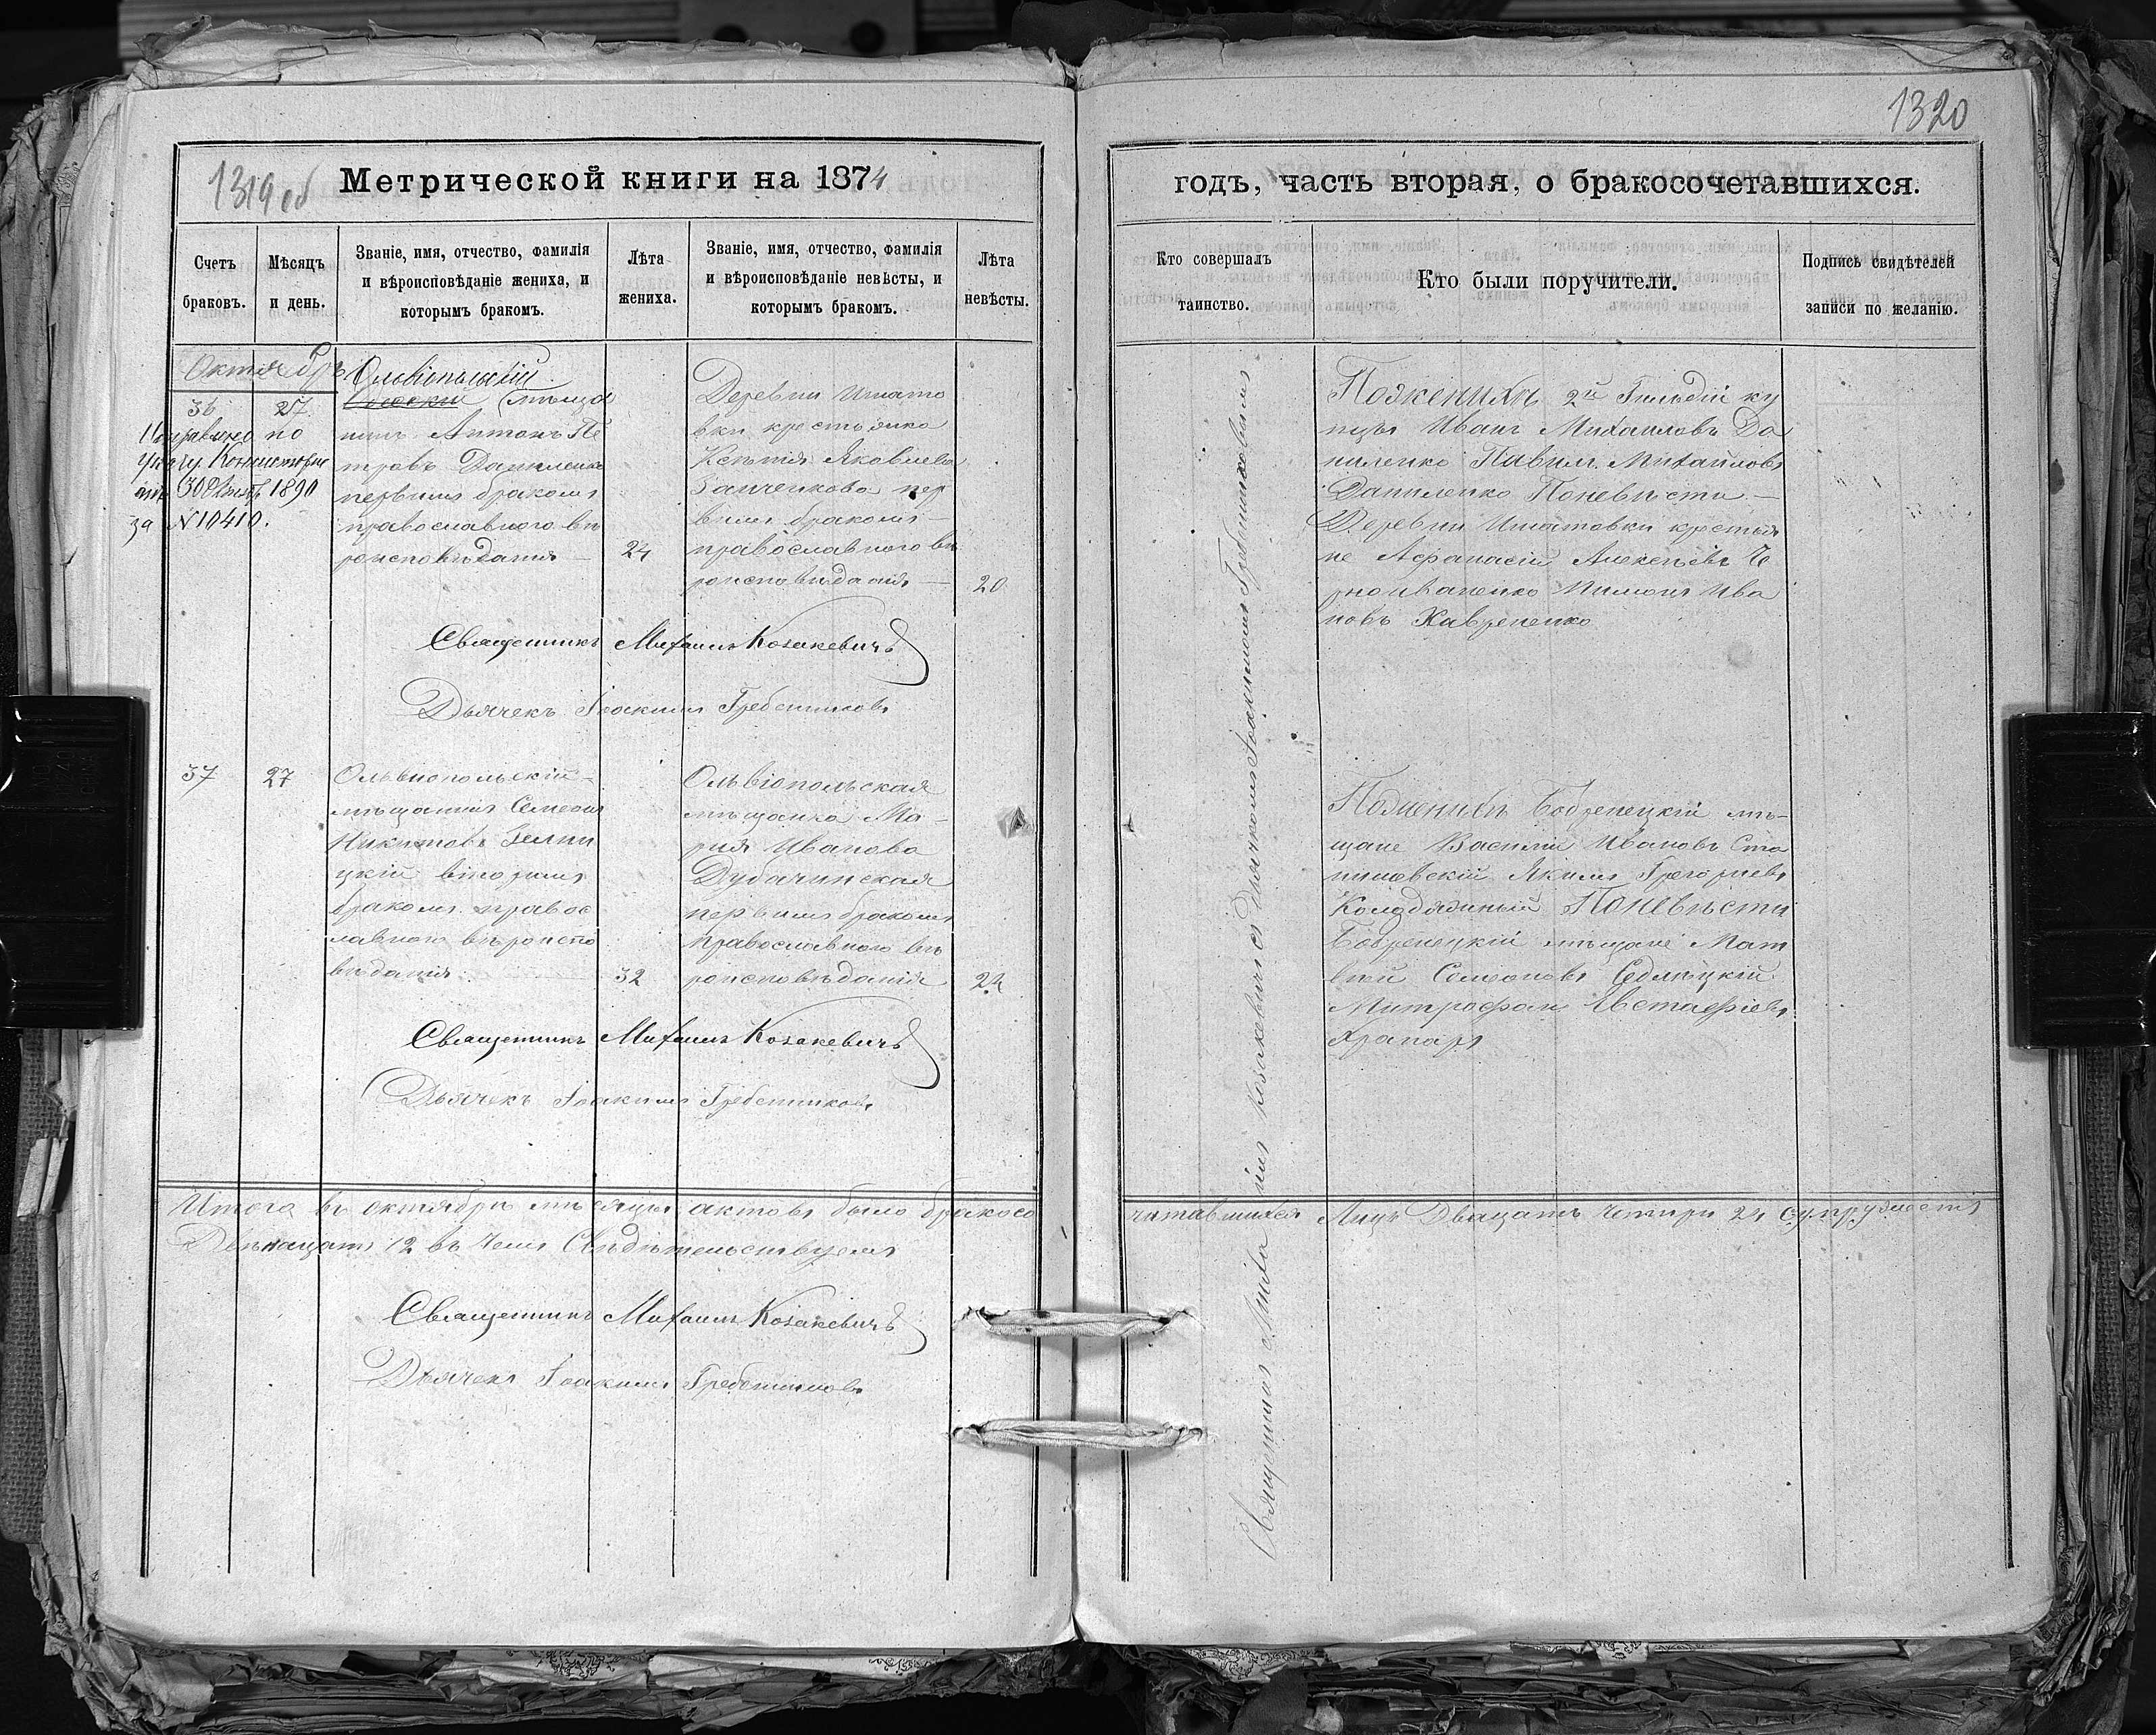 1319 об
Метрической книги на 1874
Счетъ браковъ.
Мѣсяцъ и день.
Званіе, имя, отчество, фамилія
и вѣроисповѣданіе жениха, и
которымъ бракомъ.
Лѣта
жениха.
Званіе, имя, отчество, фамилія
и вѣроисповѣданіе невѣсты, и
которымъ бракомъ.
Лѣта
невѣсты.
Октябрь
36
27
Исправлено по
указу Консисторіи
отъ 30 1890
за № 10410.
Ольвіопольскій
мѣща
нинъ Антонъ Пе
тровъ Даниленко
первымъ бракомъ
православнаго вѣ
роисповѣданія —
24
Деревни Игнато
вки крестьянка
Ксенія Яковлева
пер
вымъ бракомъ —
православного вѣ
роисповѣданія —
20
Священникъ Михаилъ Козакевичъ
Дьячекъ Іоакимъ Гребенниковъ
37
27
Ольвіопольскій —
мѣщанинъ Семеонъ
Никитовъ
цкій вторымъ
бракомъ правос
лавного вѣроиспо
вѣданія
32
Ольвіопольская
мѣщанка Ма-
рия Иванова
Дубачинская
первымъ бракомъ
православного вѣ
роисповѣданія
24
Священникъ Михаилъ Козакевичъ
Дьячекъ Іоакимъ Гребенниковъ
Итого въ октябрѣ мѣсяцѣ актовъ было бракосо
Двѣнацать 12 въ чемъ Свидѣтельствуемъ
Священникъ Михаилъ Козакевичъ
Дьячекъ Іоакимъ Гребенниковъ
1320
годъ, часть вторая, о бракосочетавшихся.
Кто совершалъ
таинство.
Кто были поручители.
Подпись свидѣтелей
записи по желанію.
Священникъ Михаилъ Козакевичъ съ Дьячкомъ Іоакимомъ Гребенниковымъ
Пожениху 2й Гильдіи ку
пцы Иванъ Михаиловъ Да
ниленко Павилъ Михаиловъ
Даниленко Поневѣсти —
Деревни Игнатовки крестья
не Афанасій Алексѣевъ Че
рноиваненко Ива
новъ Хавренко
Пожениху Бобренецкій мѣ-
щане Василій Ивановъ Ста
нишевскій Якимъ Грегориевъ
Колодяжный Поневѣсти
Бобренецкій мѣщане Мат
вѣй Семеоновъ Седлецкій
Митрофанъ Евстафіевъ
читавшихся Лицъ Двацать Четыри 24 супружествъ